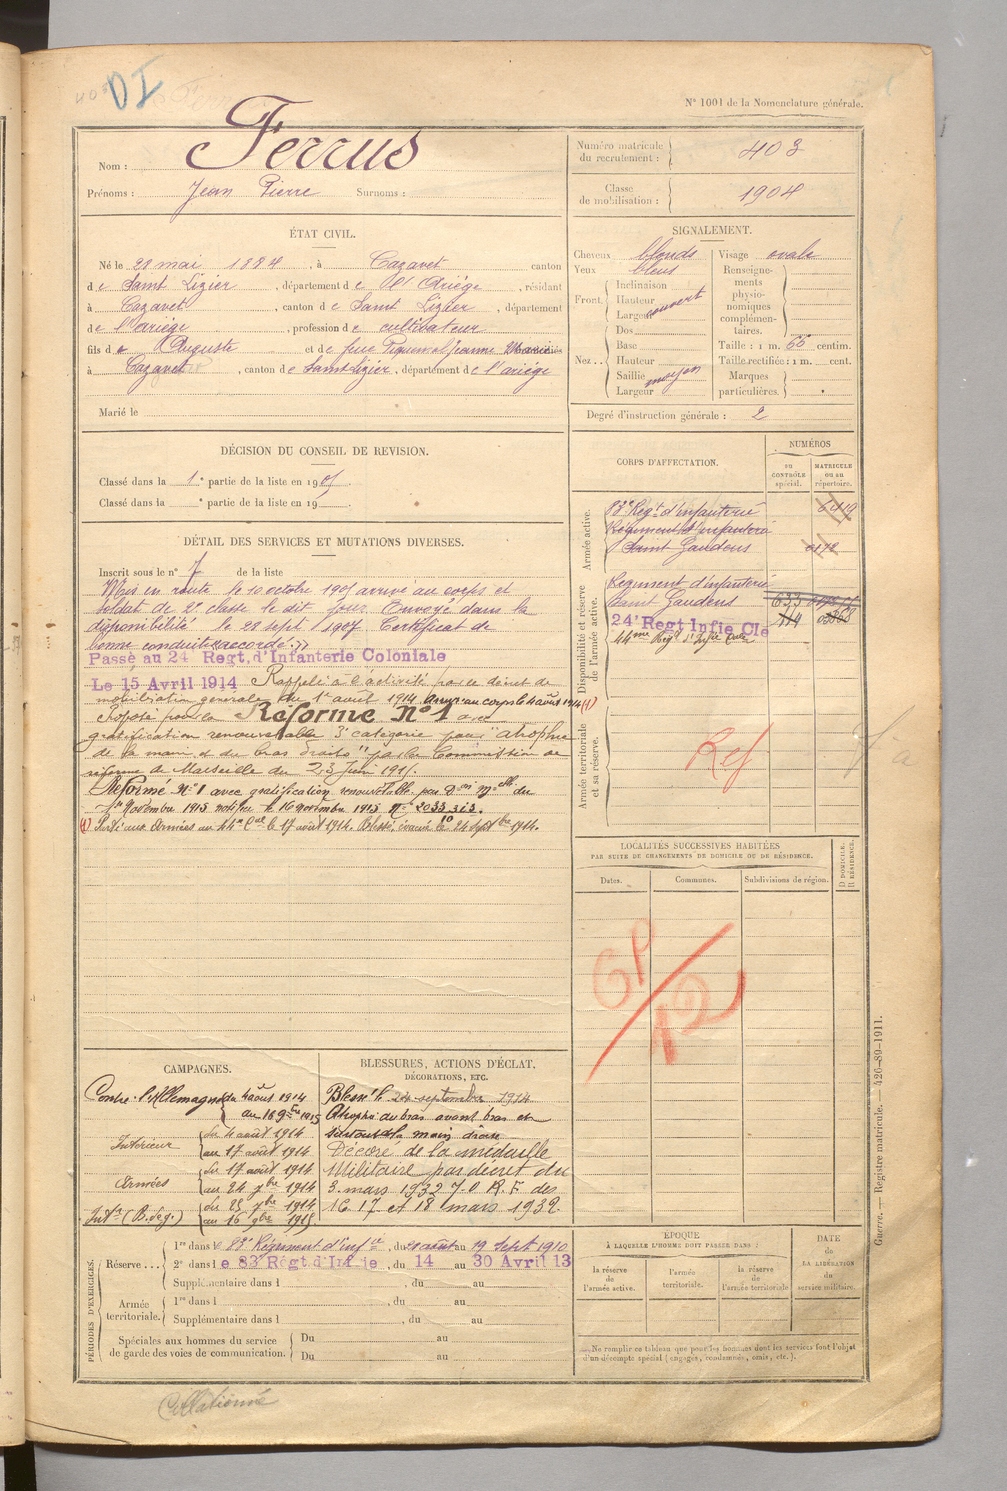 DI
N° 1001 de la Nomenclature générale.
Nom : Ferrus
Prénoms : Jean Pierre Surnoms :
Numéro matricule du recrutement : 403
Classe de mobilisation : 1904
ÉTAT CIVIL.
Né le 28 mai 1884, à Cazavet canton
de Saint Lizier, département de l'Ariège, résidant
à Cazavet, canton de Saint Lizier, département
de l'ariège, profession de cultivateur
fils de Auguste et de feue Piquemal Jeanne Marie
à Cazavet, canton de Saint Lizier, département de l'ariège
Marié le
SIGNALEMENT.
Cheveux blonds
Yeux bleus
Front. Inclinaison
Hauteur
Largeur
ouvert
Nez... Dos
Base
Hauteur
Saillie
Largeur
moyen
Visage ovale
Renseignements physionomiques complémentaires.
Taille : 1 m. 66 centim.
Taille rectifiée : 1 m. cent.
Marques particulières.
Degré d'instruction générale : 2
DÉCISION DU CONSEIL DE REVISION.
Classé dans la 1e partie de la liste en 1905.
Classé dans la e partie de la liste en 19
DÉTAIL DES SERVICES ET MUTATIONS DIVERSES.
Inscrit sous le n° 7 de la liste
Mis en route le 10 octobre 1905 arrivé au corps et
soldat de 2e classe le dit jour. Envoyé dans la
disponibilité le 28 sept. 1907 Certificat de
bonne conduite "accordé"
Passé au 24 Regt. d'Infanterie Coloniale
Le 15 Avril 1914 Rappelé à l'activité par le décret de
mobilisation générale du 1er août 1914 Arrivé au corps le 4 août 1914 (1)
Proposé pour la Réforme N° 1 avec
gratification renouvelable 3e catégorie pour "atrophie
de la main et du bras droits" par la Commission de
réforme de Marseille du 23 Juin 1915.
Réformé N° 1 avec gratification renouvelable par Don Melle du
1er Novembre 1915 notifiée le 16 novembre 1915
(1) Parti aux Armées au 44e Cal le 17 août 1914. Blessé, évacué le 24 septbre 1914.
CORPS D'AFFECTATION.
NUMÉROS
au contrôle spécial.
matricule ou au répertoire.
Armée active.
83e Regt d'infanterie
Régiment d'infanterie
Saint Gaudens
Disponibilité et réserve de l'armée active.
Régiment d'infanterie
Saint Gaudens 633
24e Regt Infie Cle
44me Regt d'Infie Cale
Armée territoriale et sa réserve.
Ref
LOCALITÉS SUCCESSIVES HABITÉES
PAR SUITE DE CHANGEMENTS DE DOMICILE OU DE RÉSIDENCE.
Dates. Communes. Subdivisions de région.
D DOMICILE.
R RÉSIDENCE.
GP/12
CAMPAGNES.
Contre l'Allemagne du 4 août 1914
au 16 9bre 1915
Intérieur du 4 août 1914
au 17 août 1914
Armées du 17 août 1914
au 24 7bre 1914
Intr (B. de g.) du 25 7bre 1914
au 16 9bre 1915
BLESSURES, ACTIONS D'ÉCLAT,
DÉCORATIONS, ETC.
Blessé le 24 septembre 1914
Atrophie du bras avant bras et
surtout de la main droite
Décoré de la médaille
Militaire par décret du
3 mars 1932 J.O. R.F. des
16. 17 et 18 mars 1932.
PÉRIODES D'EXERCICES.
Réserve... 1re dans le 83e Régiment d'infie, du 28 août au 19 Sept 1910
2e dans le 83 Regt. d'Infie, du 14 au 30 Avril 13
Supplémentaire dans l , du au
Armée territoriale. 1re dans l , du au
Supplémentaire dans l , du au
Spéciales aux hommes du service de garde des voies de communication. Du au
Du au
ÉPOQUE
À LAQUELLE L'HOMME DOIT PASSER DANS :
la réserve de l'armée active.
l'armée territoriale.
la réserve de l'armée territoriale
DATE de LA LIBÉRATION du service militaire.
Ne remplir ce tableau que pour les hommes dont les services font l'objet
d'un décompte spécial (engagés, condamnés, omis, etc.).
Guerre. — Registre matricule. — 426-89-1911.
Collationné